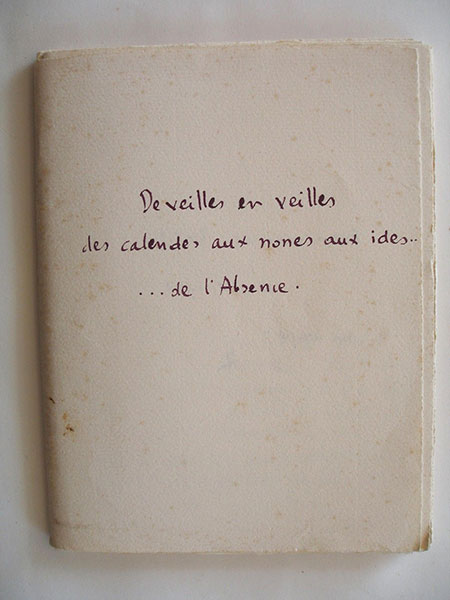 De veilles en veilles
des calendes aux nones aux ides..
...de l'Absence.